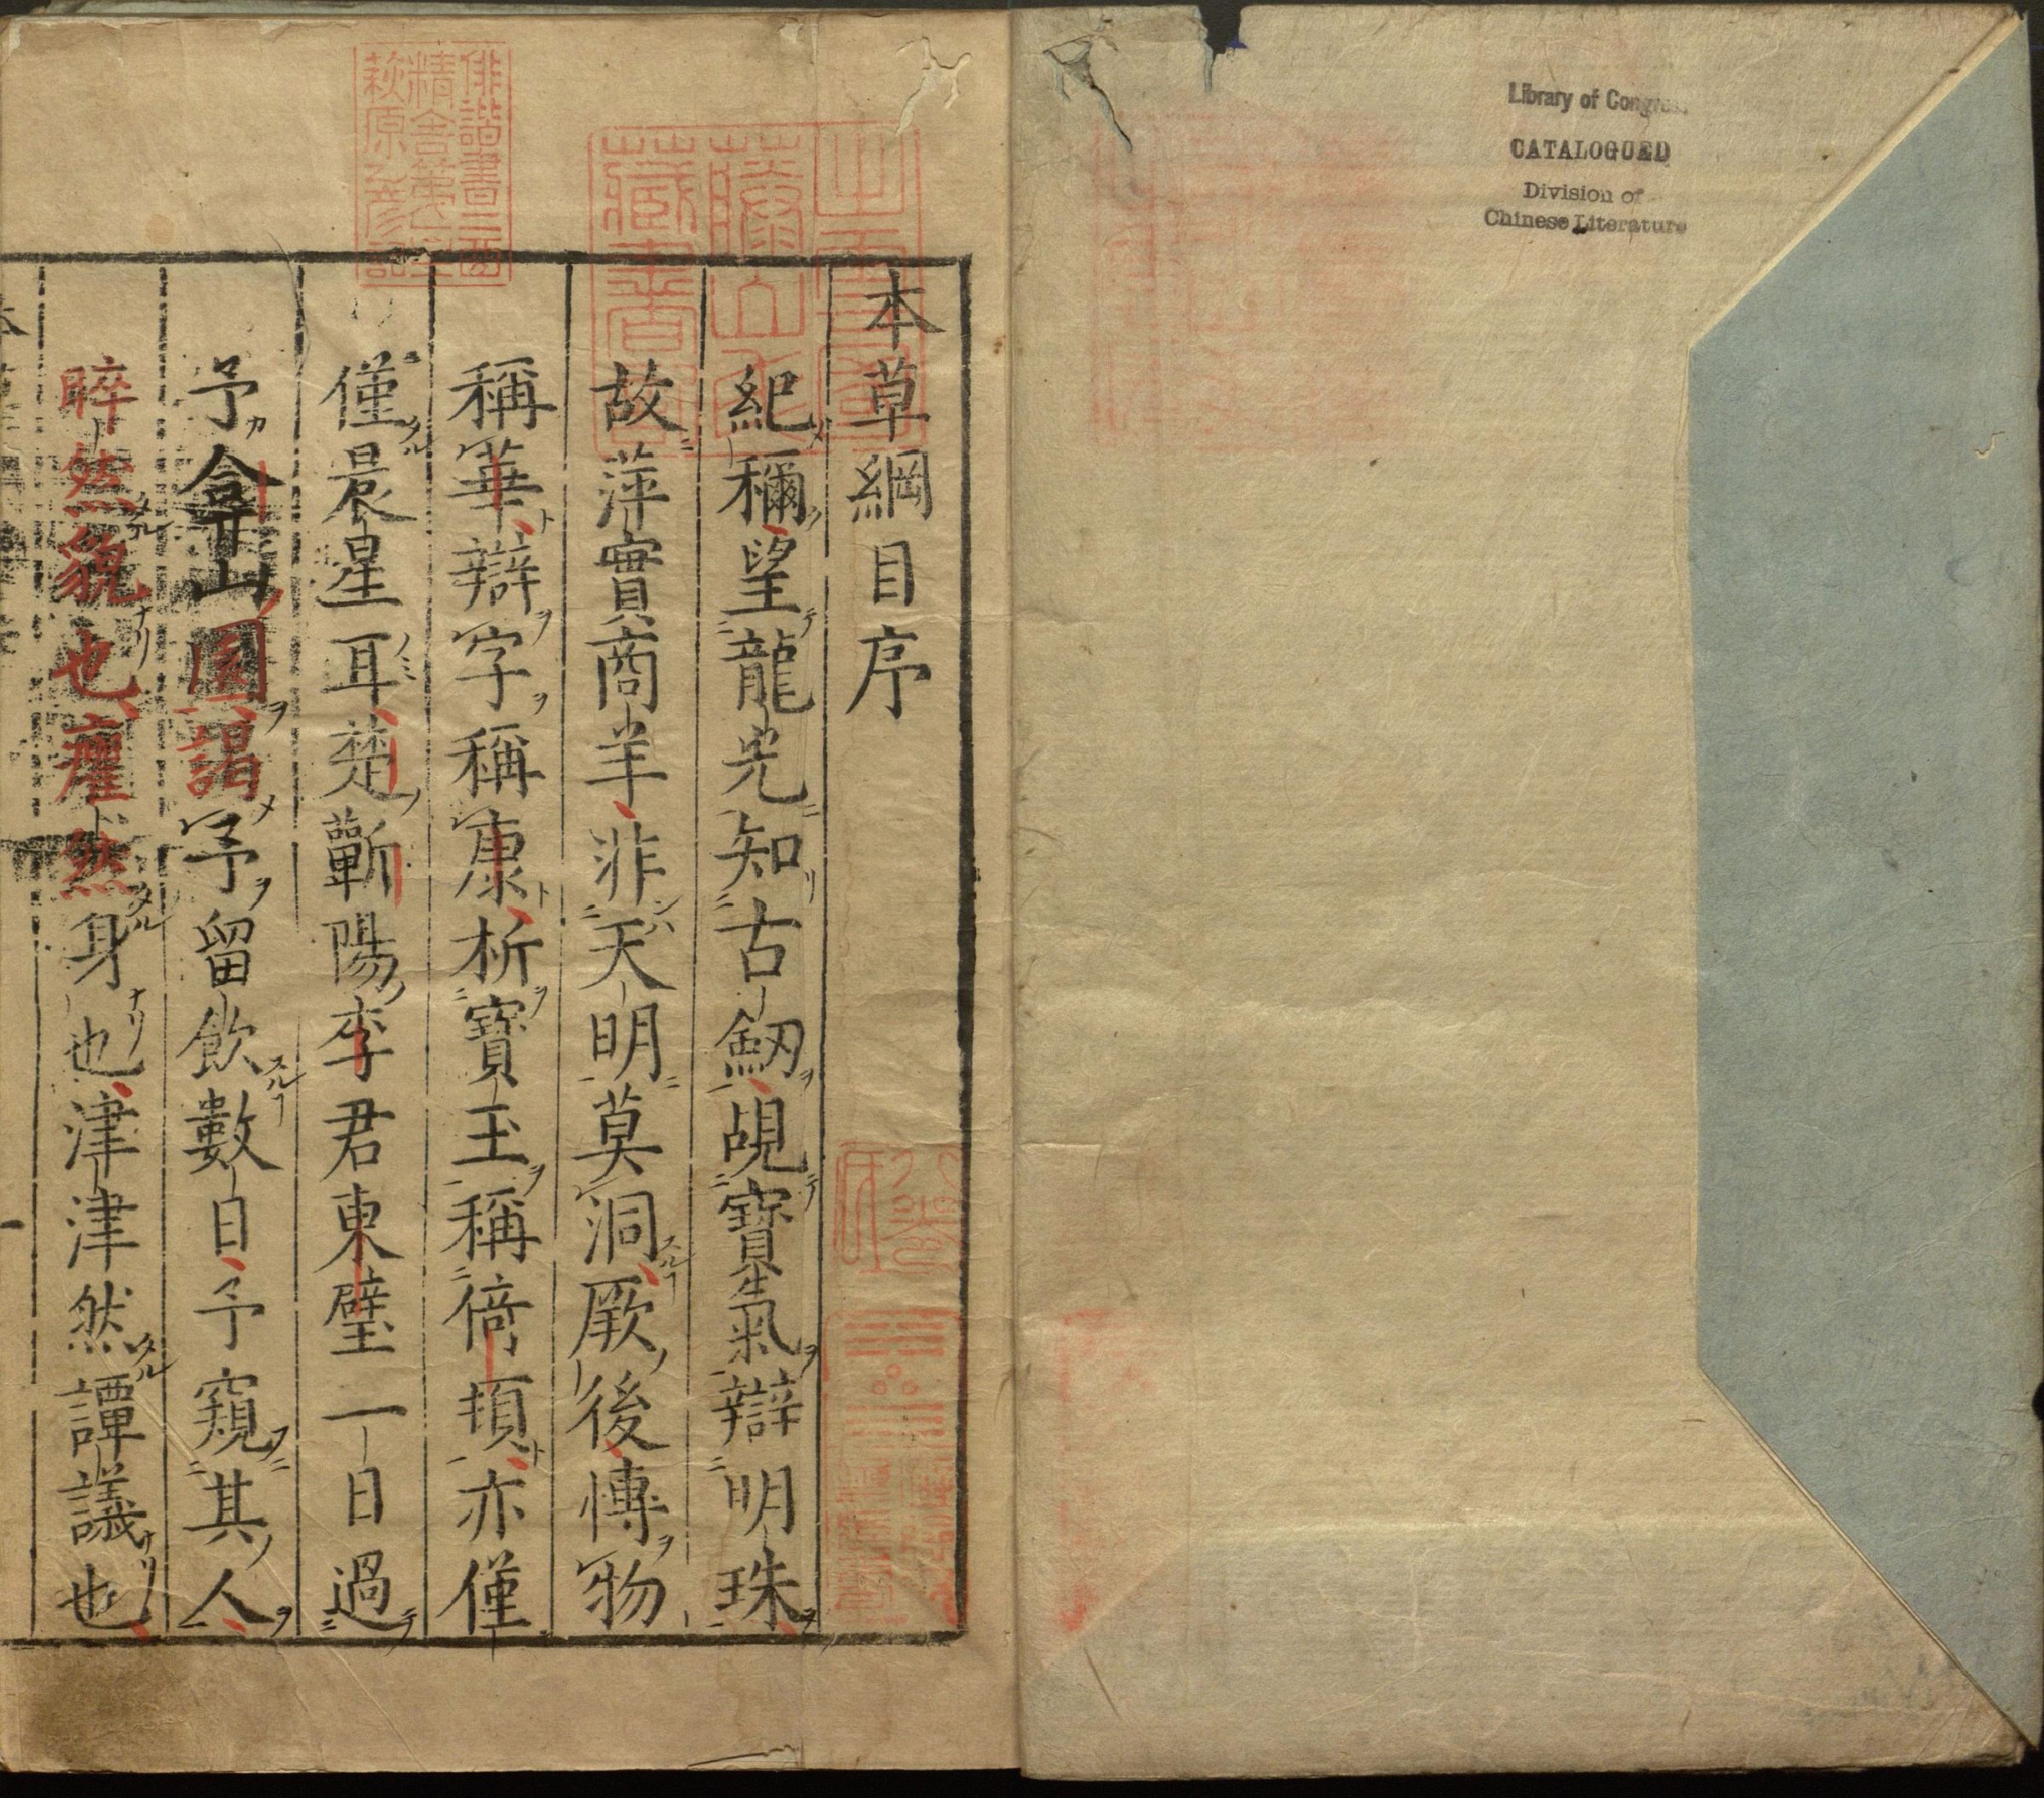 Library of Congress
CATALOGUED
Division of
Chinese Literature
本草綱目序
紀稱望龍光知古劔覘寳氣辯明珠
故萍實商羊非天明莫洞厥後博物
稱華辯字稱康析寳玉稱倚頓亦僅
僅晨星耳楚蘄陽李君東璧一日過
予弇山園謁予留飲數日予窺其人
睟然貌也癯然身也津津然譚議也
俳諧書二酉
精舍第一主
萩原乙彦記
藏書